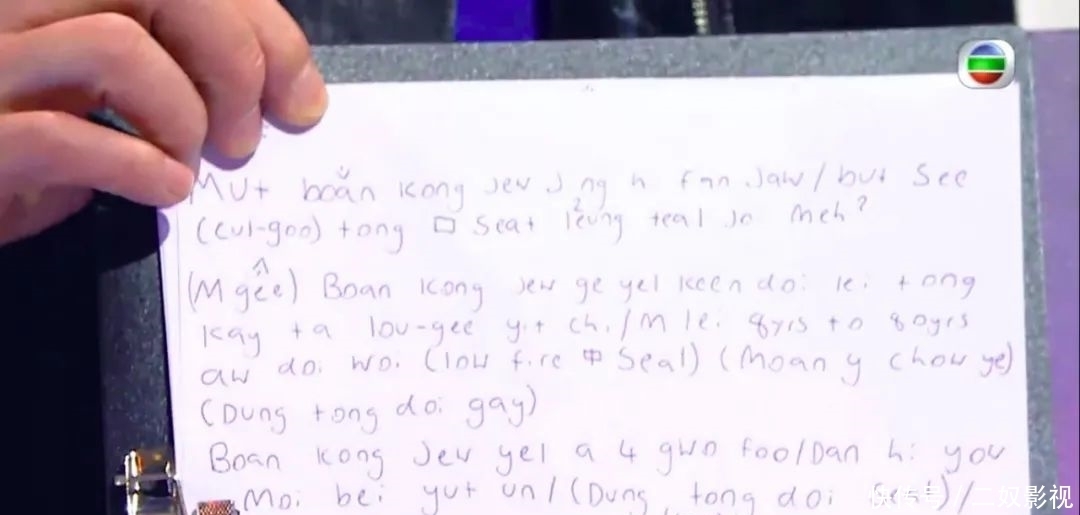 Mut boǎn kong Jew J ng h fan Jaw / but see
(cul-goo) tong □ Seat leung teal Jo meh?
(M gêe) Boan kong Jew ge yel keen doi lei tong
kay ta lou-gee yit chi / M lei 8yrs to 80yrs
aw doi woi (low fire 中 Seal) (Moan y chow ye)
(Dung tong doi gay)
Boan kong Jew yel a 4 gwo foo / Dan hi you
Moi bei yut un / (Dung tong doi
快传号 / 二奴影视